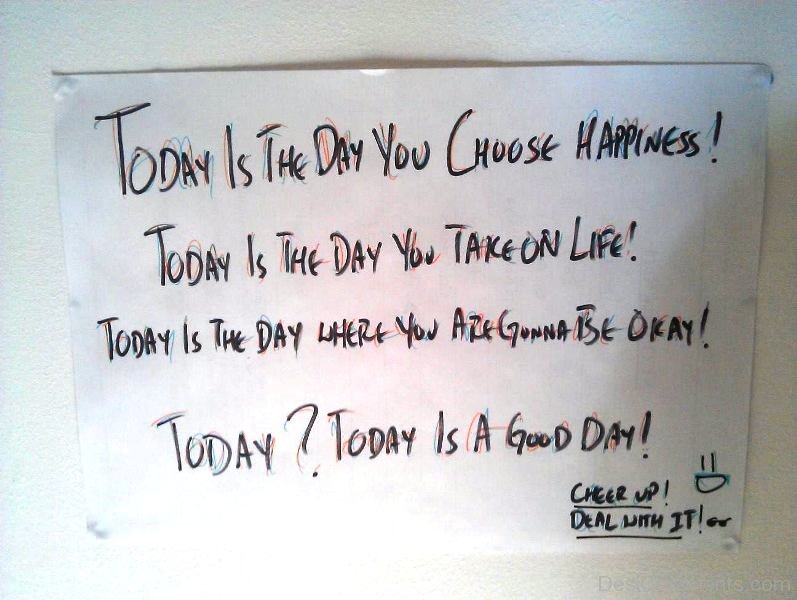 Today Is The Day You Choose Happiness!
Today Is The Day You Take on Life!
Today Is The Day where You Are Gonna Be Okay!
Today? Today Is A Good Day!
Cheer up!
Deal with It!